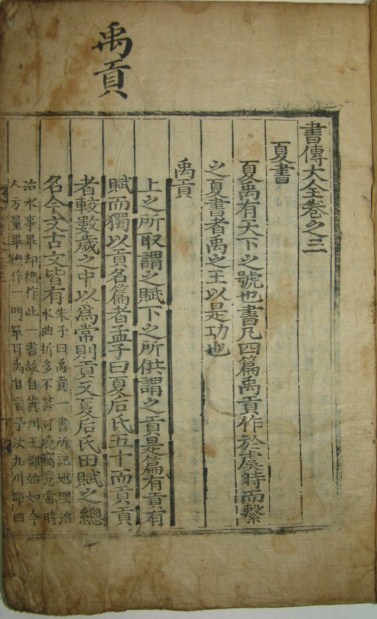 禹貢
書傳大全卷之三
夏書
夏禹有天下之號也書凡四篇禹貢作於虞時而繫
之夏書者禹之王以是功也
禹貢
上之所取謂之賦下之所供謂之貢是篇有貢有
賦而獨以貢名篇者孟子曰夏后氏五十而貢貢
者較數歲之中以爲常則貢又夏后氏田賦之總
名今文古文皆有
朱子曰禹貢一書所記地理治
水曲折多不甚可曉竊意當時
治水事畢却總作此一書故自冀州王都始如今
人方量畢總作一門單耳禹自言予決九川距四